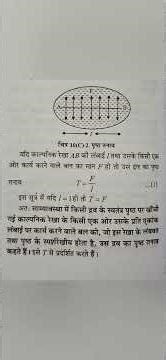 चित्र 10(C).2 पृष्ठ तनाव
यदि काल्पनिक रेखा AB की लंबाई l तथा उसके किसी एक
ओर कार्य करने वाले बल का मान F हो तो उस द्रव का पृष्ठ
तनाव T = F/l ...(1)
इस सूत्र में यदि l = 1 हो तो T = F
अतः साम्यावस्था में किसी द्रव के स्वतंत्र पृष्ठ पर खींची
गई काल्पनिक रेखा के किसी एक ओर उसके प्रति एकांक
लंबाई पर कार्य करने वाले बल को, जो इस रेखा के लंबवत
तथा पृष्ठ के स्पर्शरेखीय होता है, उस द्रव का पृष्ठ तनाव
कहते हैं। इसे T से प्रदर्शित करते हैं।